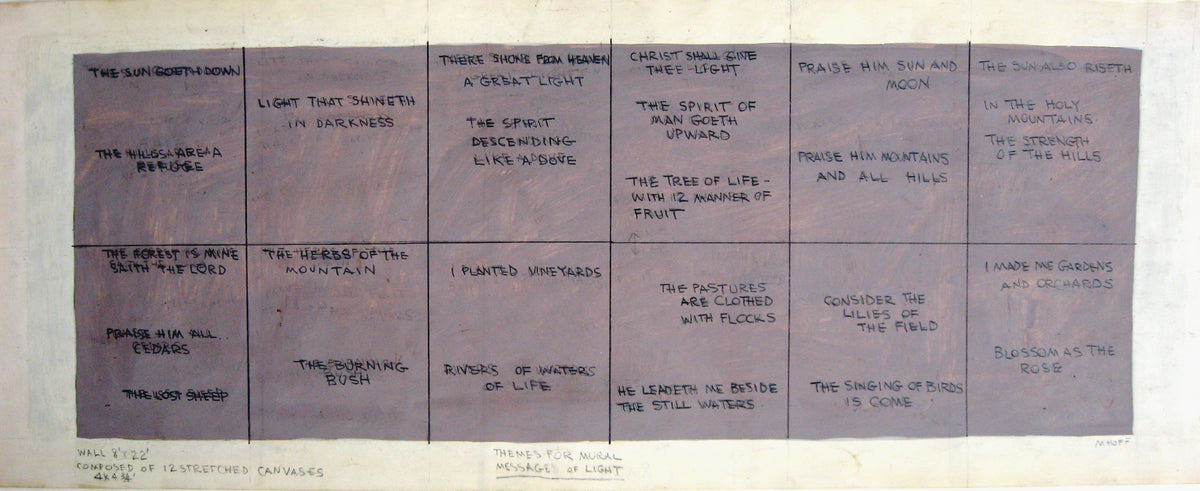 THE SUN GOETH DOWN
THE HILLS ARE A
REFUGE
LIGHT THAT SHINETH
IN DARKNESS
THERE SHONE FROM HEAVEN
A GREAT LIGHT
THE SPIRIT
DESCENDING
LIKE A DOVE
CHRIST SHALL GIVE
THEE LIGHT
THE SPIRIT OF
MAN GOETH
UPWARD
THE TREE OF LIFE -
WITH 12 MANNER OF
FRUIT
PRAISE HIM SUN AND
MOON
PRAISE HIM MOUNTAINS
AND ALL HILLS
THE SUN ALSO RISETH
IN THE HOLY
MOUNTAINS
THE STRENGTH
OF THE HILLS
THE FOREST IS MINE
SAITH THE LORD
PRAISE HIM ALL
CEDARS
THE LOST SHEEP
THE HERBS OF THE
MOUNTAIN
THE BURNING
BUSH
I PLANTED VINEYARDS
RIVERS OF WATERS
OF LIFE
THE PASTURES
ARE CLOTHED
WITH FLOCKS
HE LEADETH ME BESIDE
THE STILL WATERS
CONSIDER THE
LILIES OF
THE FIELD
THE SINGING OF BIRDS
IS COME
I MADE ME GARDENS
AND ORCHARDS
BLOSSOM AS THE
ROSE
WALL 8' X 22'
COMPOSED OF 12 STRETCHED CANVASES
4 X 4 3/4'
THEMES FOR MURAL
MESSAGE OF LIGHT
M HOFF